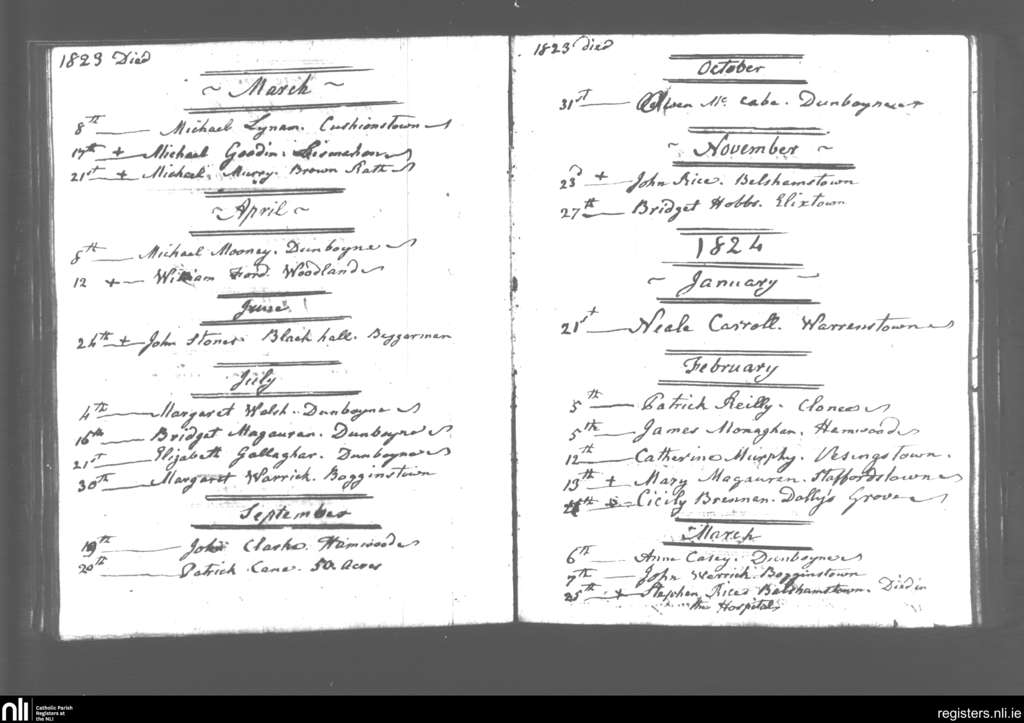 1823 Died
~ March ~
8th Michael Lynam. Cushionstown
17th + Michael Goodin. Lismahon
21st + Michael Murry. Brown Rath
~ April ~
8th Michael Mooney. Dunboyne
12 + William Ford. Woodland
June
24th + John Stones. Black hall. Beggerman
July
4th Margaret Walsh. Dunboyne
16th Bridget Magauran. Dunboyne
21st Elizabeth Gallaghar. Dunboyne
30th Margaret Warrick. Bogginstown
September
19th John Clarke. Hamwood
20th Patrick Cane. 50 Acres
1823 died
October
31st Owen Mc Cabe. Dunboyne
~ November ~
23d + John Rice. Belshamstown
27th Bridget Hobbs. Elixtown
1824
~ January ~
21st Neale Carroll. Warrenstown
February
5th Patrick Reilly. Clonee
5th James Monaghan. Hamwood
12th Catherine Murphy. Vesingstown.
13th + Mary Magauren. Staffordstown
Cicily Brennan. Dolly's Grove
March
6th Anne Casey. Dunboyne
7th John Warrick. Bogginstown
25th + Stephen Rice. Belshamstown. Died in
the Hospital
nli Catholic Parish
Registers at
the NLI
registers.nli.ie